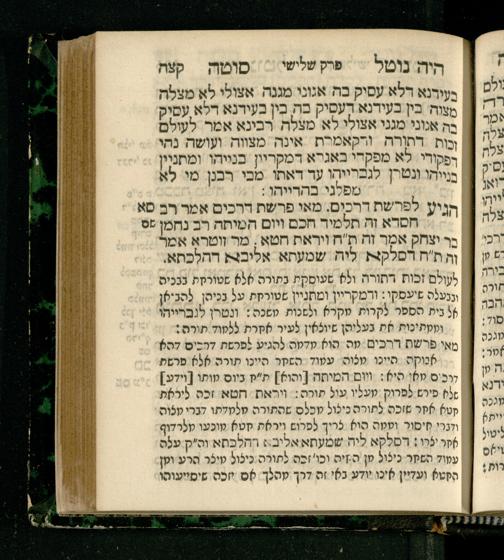 היה נוטל פרק שלישי סוטה קצה
בעידנא דלא עסיק בה אגוני מגנה אצולי לא מצלה
מצוה בין בעידנא דעסיק בה בין בעידנא דלא עסיק
בה אגוני מגני אצולי לא מצלה רבינא אמר לעולם
זכות דתורה ודקאמרת אינה מצווה ועושה נהי
דפקודי לא מפקדי באגרא דמקריין בנייהו ומתניין
בנייהו ונטרן לגברייהו עד דאתו מבי רבנן מי לא
מפלגי בהדייהו :
הגיע לפרשת דרכים . מאי פרשת דרכים אמר רב סא
חסדא זה תלמיד חכם ויום המיתה רב נחמן סס
בר יצחק אמר זה ת״ח ויראת חטא . מר זוטרא אמר
זה ת״ח דסלקא ליה שמעתא אליבא דהלכתא.
לעולם זכות התורה ולא שעוסקת בתורה אלא שטורחת בבניה
ובבעלה שיעסקו : ודמקריין ומתניין שטורחת על בניהן להביאן
אל בית הספר לקרות מקרא ולשנות משנה : ונטרן לגברייהו
וממתינות את בעליהן שיוצאין לעיר אחרת ללמוד תורה :
מאי פרשת דרכים מה הוא מדמה להגיע לפרשת דרכים דהא
אבוקה היינו מצוה עמוד השחר היינו תורה אלא פרשת
דרכים מאי היא : ויום המיתה [והוא] ת״ח ביום מותו [וידע]
שלא פירש לפרוק מעליו עול תורה : ויראת חטא זכה ליראת
חטא אחר שזכה לתורה ניצול מכלם שהתורה מלמדתו דברי מצוה
ודברי איסור ומה הוא צריך לפרוש ויראת חטא מונעו מלרדוף
אחר יצרו : דסלקא ליה שמעתא אליבא דהלכתא וה״ק עלה
עמוד השחר ניצול מן הזיה וכו׳ זכה לתורה ניצול מיצר הרע ומן
החטא ועדיין אינו יודע באיזה דרך מהלך אם יזכה שיסייעוהו